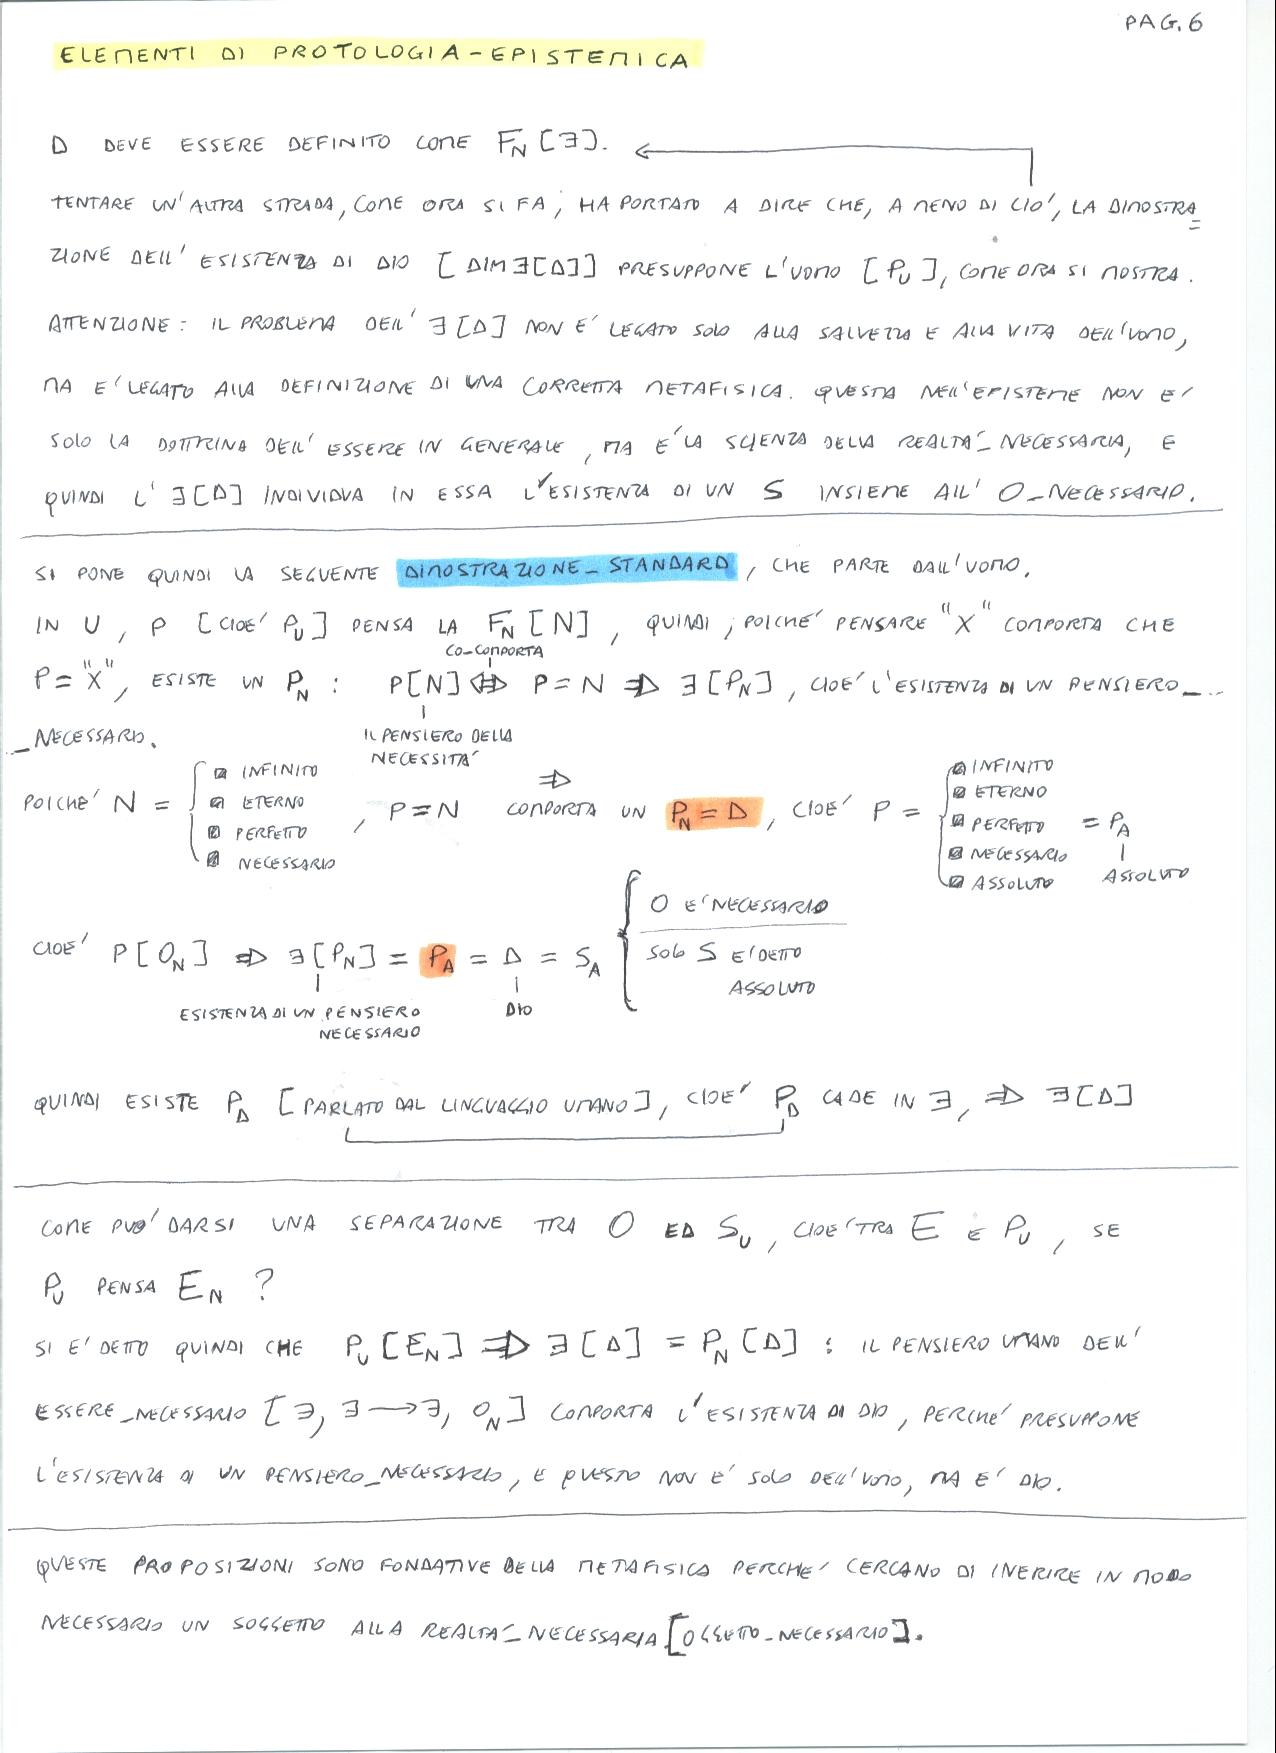 PAG. 6
ELEMENTI DI PROTOLOGIA-EPISTEMICA
D DEVE ESSERE DEFINITO COME F_N [∃].
TENTARE UN'ALTRA STRADA, COME ORA SI FA, HA PORTATO A DIRE CHE, A MENO DI CIO', LA DIMOSTRA=
ZIONE DELL'ESISTENZA DI DIO [DIM∃[Δ]] PRESUPPONE L'UOMO [P_U], COME ORA SI MOSTRA.
ATTENZIONE: IL PROBLEMA DELL'∃[Δ] NON E' LEGATO SOLO ALLA SALVEZZA E ALLA VITA DELL'UOMO,
MA E' LEGATO ALLA DEFINIZIONE DI UNA CORRETTA METAFISICA. QUESTA NELL'EPISTEME NON E'
SOLO LA DOTTRINA DELL'ESSERE IN GENERALE, MA E' LA SCIENZA DELLA REALTA'_NECESSARIA, E
QUINDI L'∃[Δ] INDIVIDUA IN ESSA L'ESISTENZA DI UN S INSIEME ALL'O_NECESSARIO.
SI PONE QUINDI LA SEGUENTE DIMOSTRAZIONE_STANDARD, CHE PARTE DALL'UOMO.
IN U, P [CIOE' P_U] PENSA LA F_N [N], QUINDI, POICHE' PENSARE "X" COMPORTA CHE
CO-COMPORTA
P = "X", ESISTE UN P_N : P[N] ⇔ P = N ⇒ ∃[P_N], CIOE' L'ESISTENZA DI UN PENSIERO_...
..._NECESSARIO.
IL PENSIERO DELLA
NECESSITA'
POICHE' N = { INFINITO
ETERNO
PERFETTO
NECESSARIO
, P = N ⇒
COMPORTA UN P_N = Δ, CIOE' P = { INFINITO
ETERNO
PERFETTO
NECESSARIO
ASSOLUTO
= P_A
ASSOLUTO
CIOE' P[O_N] ⇒ ∃[P_N] = P_A = Δ = S_A { O E' NECESSARIO
SOLO S E' DETTO
ASSOLUTO
ESISTENZA DI UN PENSIERO
NECESSARIO
DIO
QUINDI ESISTE P_Δ [PARLATO DAL LINGUAGGIO UMANO], CIOE' P_Δ CADE IN ∃, ⇒ ∃[Δ]
COME PUO' DARSI UNA SEPARAZIONE TRA O ED S_U, CIOE' TRA E E P_U, SE
P_U PENSA E_N ?
SI E' DETTO QUINDI CHE P_U [E_N] ⇒ ∃[Δ] = P_N [Δ] : IL PENSIERO UMANO DELL'
ESSERE_NECESSARIO [∃, ∃→∃, O_N] COMPORTA L'ESISTENZA DI DIO, PERCHE' PRESUPPONE
L'ESISTENZA DI UN PENSIERO_NECESSARIO, E QUESTO NON E' SOLO DELL'UOMO, MA E' DIO.
QUESTE PROPOSIZIONI SONO FONDATIVE DELLA METAFISICA PERCHE' CERCANO DI INERIRE IN MODO
NECESSARIO UN SOGGETTO ALLA REALTA'_NECESSARIA [OGGETTO_NECESSARIO].